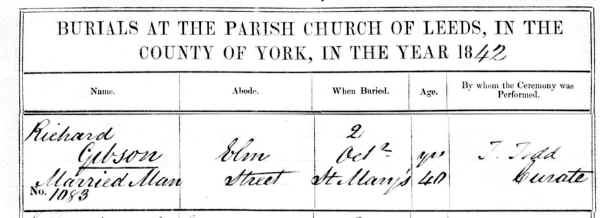 BURIALS AT THE PARISH CHURCH OF LEEDS, IN THE
COUNTY OF YORK, IN THE YEAR 1842
Name. Abode. When Buried. Age. By whom the Ceremony was Performed.
Richard 2
Gibson Elm Octr yrs T. Todd
Married Man Street St Mary's 40 Curate
No. 1083